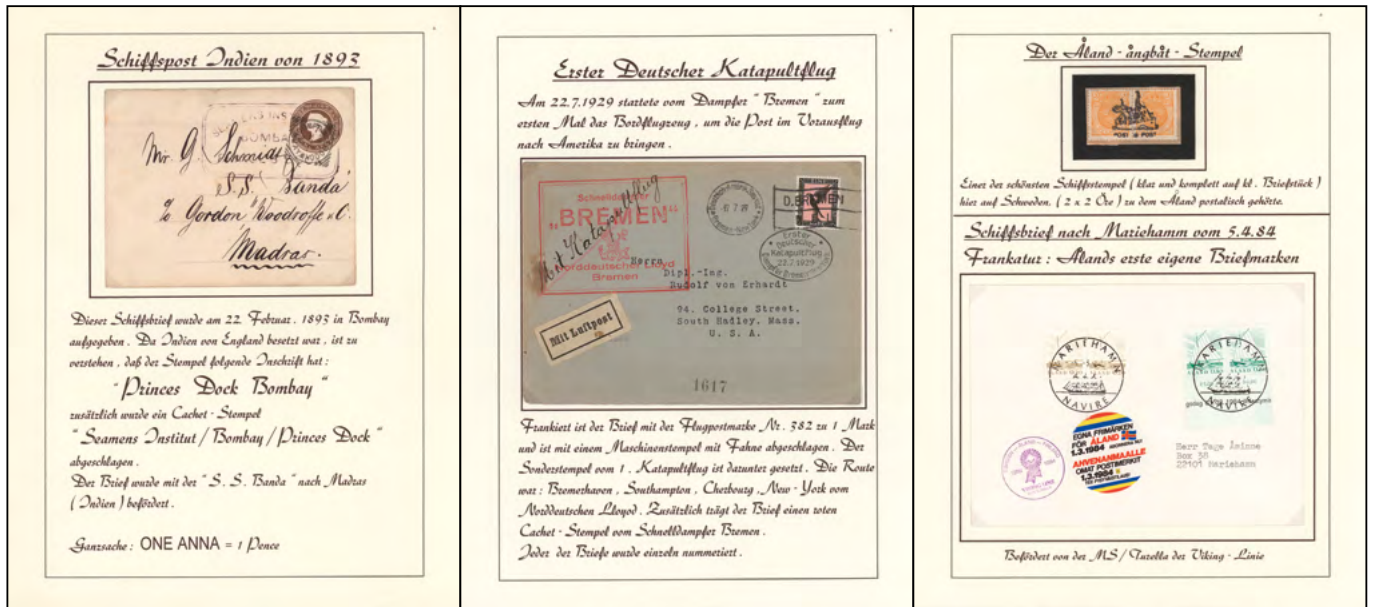 Schiffspost Indien von 1893
SEAMENS INS
BOMBA
Mr. G. Schmidt
S.S. Banda
c/o Gordon Woodroffe & C.
Madras.
Dieser Schiffsbrief wurde am 22. Februar. 1893 in Bombay
aufgegeben. Da Indien von England besetzt war, ist zu
verstehen, daß der Stempel folgende Inschrift hat:
"Princes Dock Bombay"
zusätzlich wurde ein Cachet-Stempel
"Seamens Institut / Bombay / Princes Dock"
abgeschlagen.
Der Brief wurde mit der "S. S. Banda" nach Madras
(Indien) befördert.
Ganzsache: ONE ANNA = 1 Pence
Erster Deutscher Katapultflug
Am 22.7.1929 startete vom Dampfer "Bremen" zum
ersten Mal das Bordflugzeug, um die Post im Vorausflug
nach Amerika zu bringen.
Schnelldampfer
"BREMEN"
Norddeutscher Lloyd
Bremen
Mit Katapultflug
D. BREMEN
Erster
Deutscher
Katapultflug
22.7.1929
Herrn
Dipl.-Ing.
Rudolf von Erhardt
94. College Street.
South Hadley, Mass.
U. S. A.
Mit Luftpost
1617
Frankiert ist der Brief mit der Flugpostmarke Nr. 382 zu 1 Mark
und ist mit einem Maschinenstempel mit Fahne abgeschlagen. Der
Sonderstempel vom 1. Katapultflug ist darunter gesetzt. Die Route
war: Bremerhaven, Southampton, Cherbourg, New-York vom
Norddeutschen Lloyod. Zusätzlich trägt der Brief einen roten
Cachet-Stempel vom Schnelldampfer Bremen.
Jeder der Briefe wurde einzeln nummeriert.
Der Åland-ångbåt-Stempel
Einer der schönsten Schiffsstempel (klar und komplett auf kl. Briefstück)
hier auf Schweden. (2 x 2 Öre) zu dem Åland postalisch gehörte.
Schiffsbrief nach Mariehamm vom 5.4.84
Frankatur: Ålands erste eigene Briefmarken
MARIEHAMN
NAVIRE
MARIEHAMN
NAVIRE
EGNA FRIMÄRKEN
FÖR ÅLAND
1.3.1984
AHVENANMAALLE
OMAT POSTIMERKIT
1.3.1984
VIKING LINE
Herr Tage Åsinne
Box 38
22101 Mariehamn
Befördert von der MS/ Turella der Viking-Linie